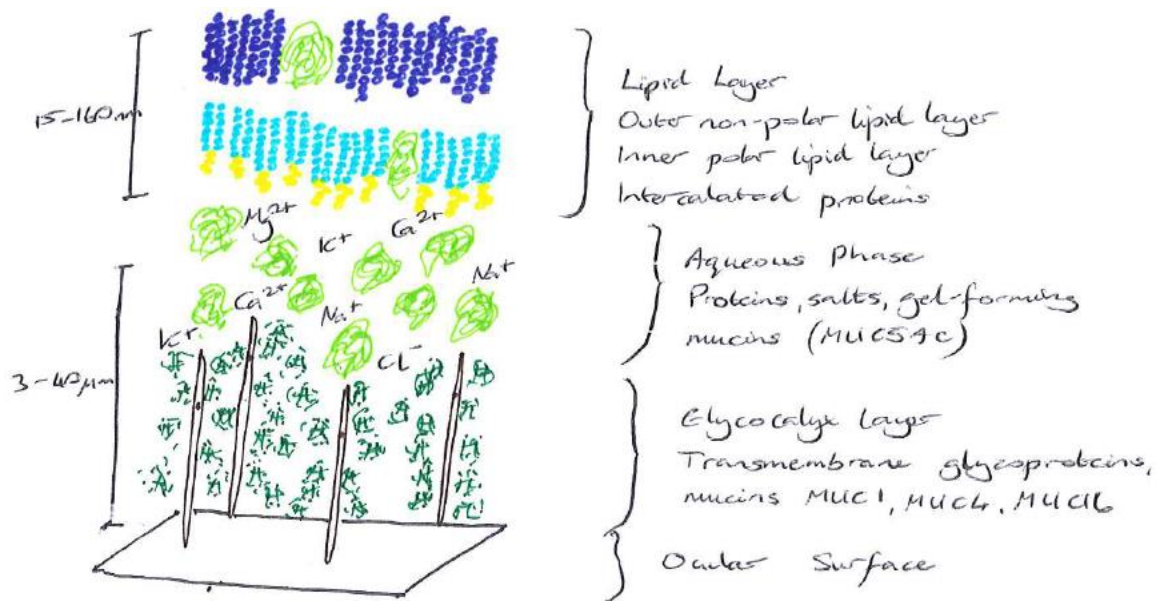 15-160nm
Mg2+
K+
Ca2+
Na+
Ca2+
Na+
K+
Cl-
3-40µm
Lipid Layer
Outer non-polar lipid layer
Inner polar lipid layer
Intercalated proteins
Aqueous Phase
Proteins, salts, gel-forming
mucins (MUC5AC)
Glycocalyx Layer
Transmembrane glycoproteins,
mucins MUC1, MUC4, MUC16
Ocular Surface